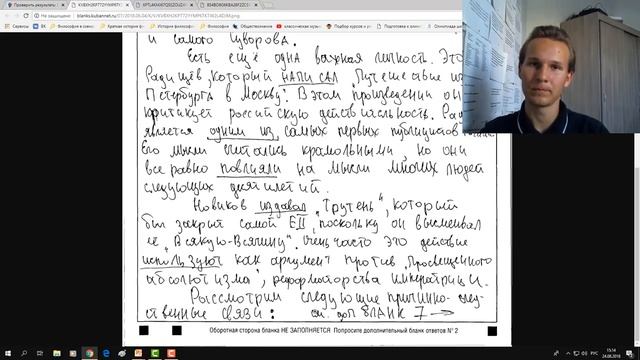 Проверить результаты
Не защищено
blanks.kubannet.ru
Сервисы
и самого Суворова.
Есть ещё одна важная личность. Это
Радищев, который написал „Путешествие из
Петербурга в Москву". В этом произведении он
критикует российскую действительность. Рад
является одним из самых первых публицистов
Его мысли считались крамольными, но они
все равно повлияли на мысли многих людей
следующих десятилетий.
Новиков издавал „Трутень", который
был закрыт самой ЕII, поскольку он высмеивал
её „Всякую-Всячину". Очень часто это действие
используют как аргумент против „Просвещенного
абсолютизма", реформаторства императрицы.
Рассмотрим следующие причинно-след-
ственные связи: см. доп бланк 7 →
Оборотная сторона бланка НЕ ЗАПОЛНЯЕТСЯ Попросите дополнительный бланк ответов № 2
РУС
15:14
24.08.2018